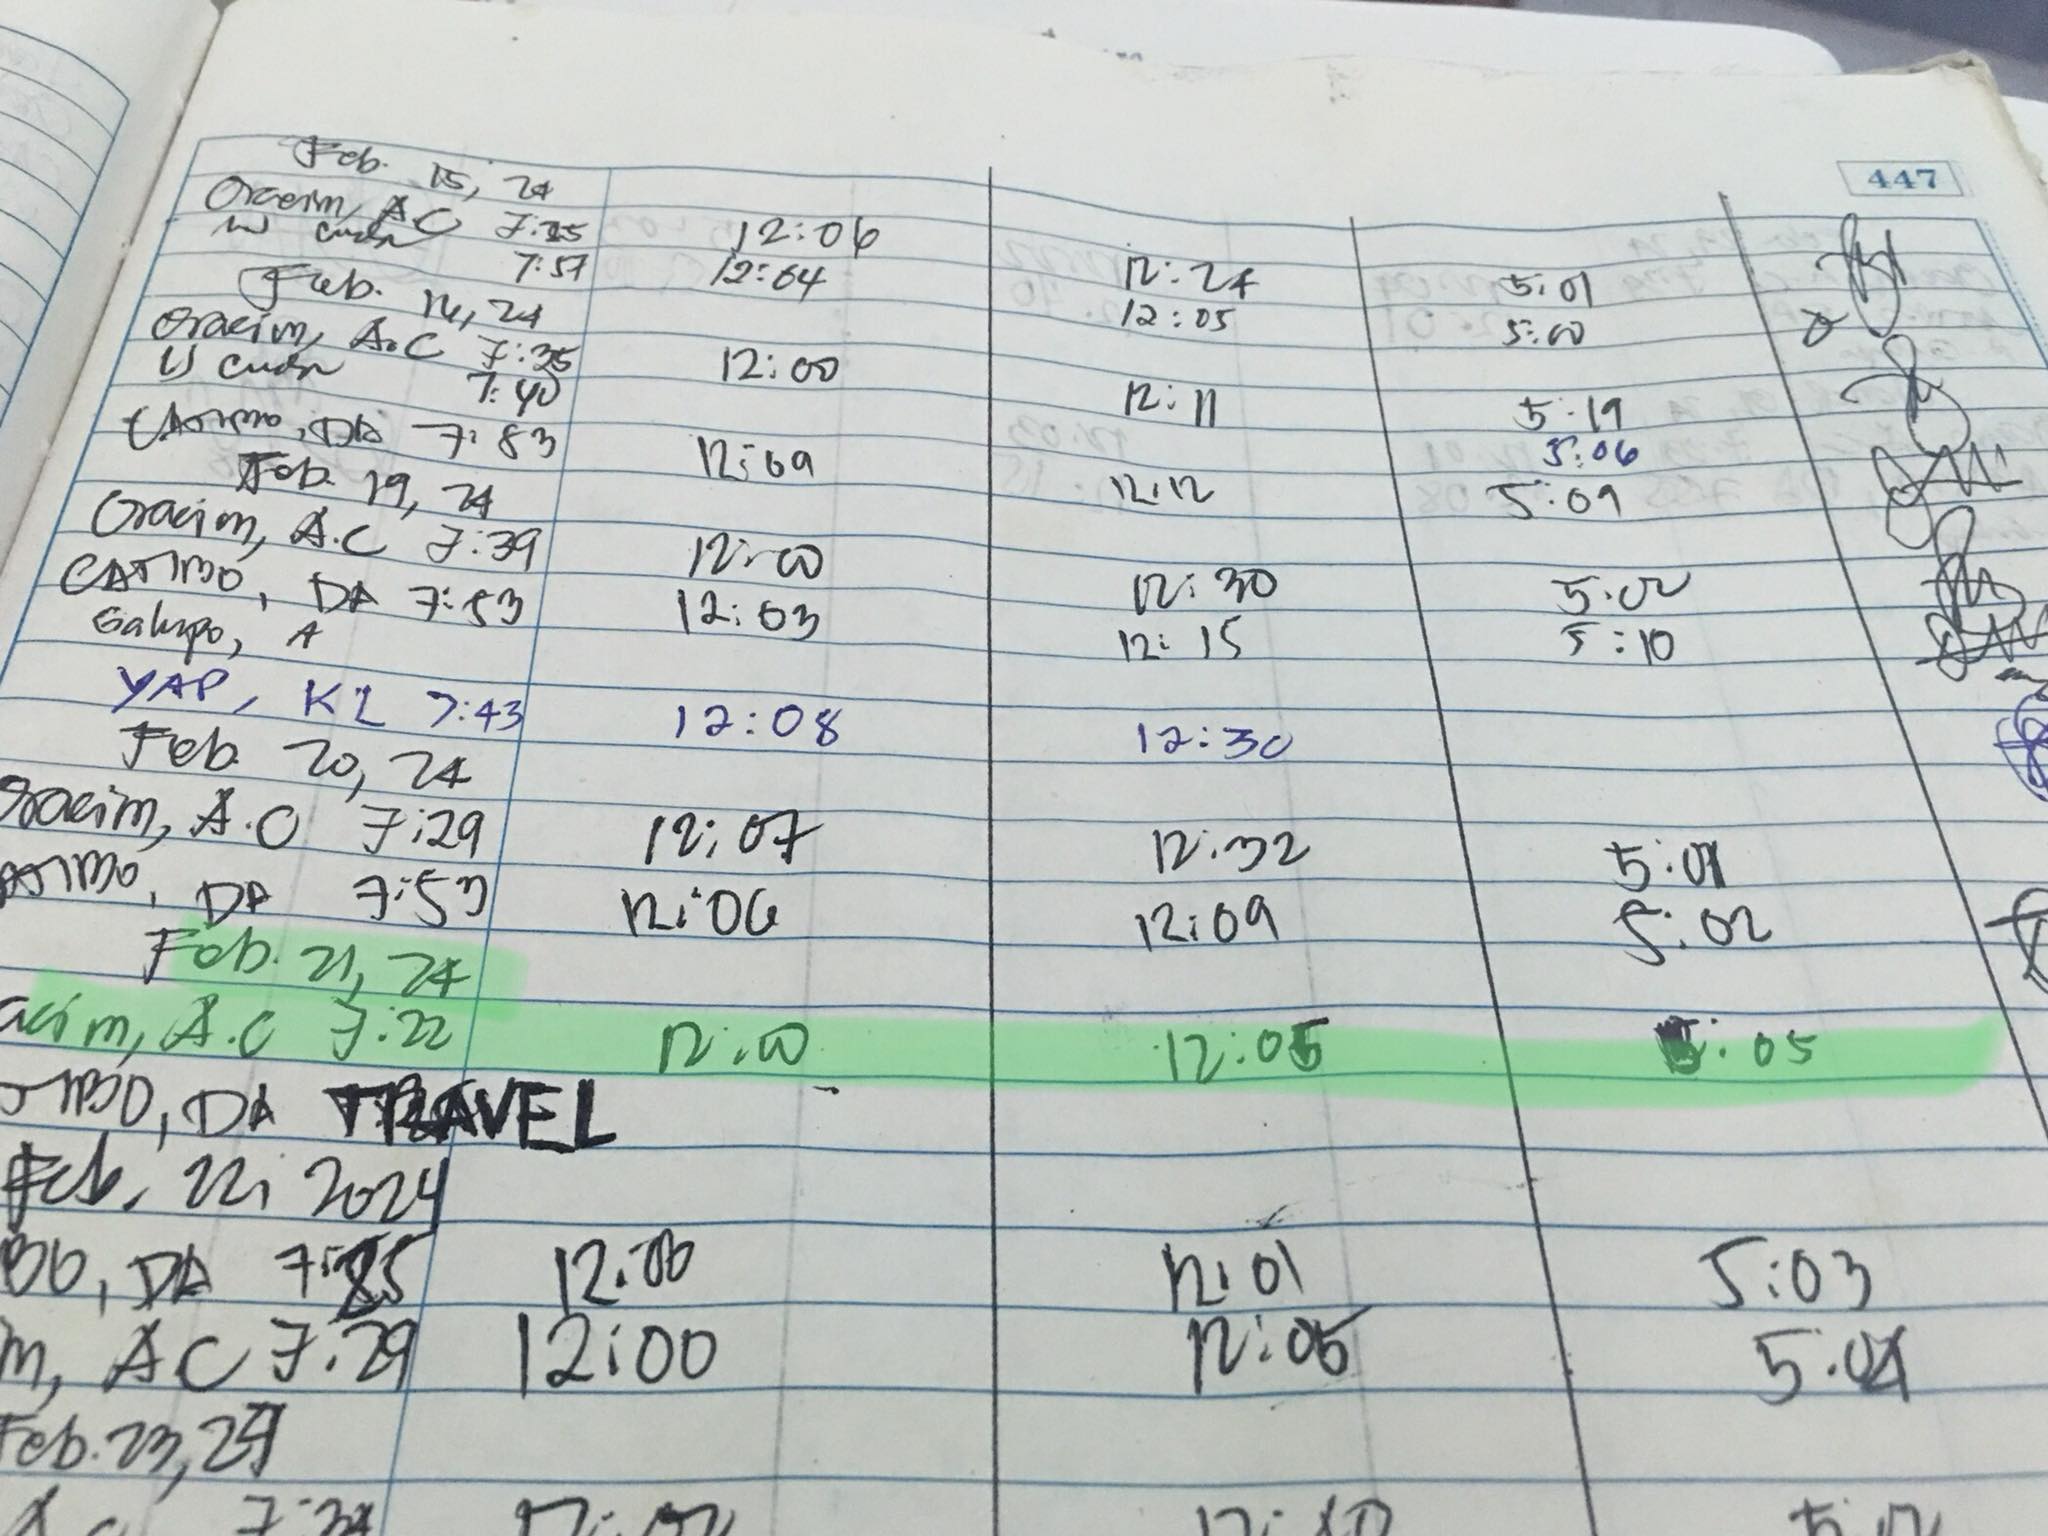 447
Feb. 15, 24
Oracim, A.C 7:35 12:06 12:24 5:01
7:57 12:04 12:05 5:00
Feb. 16, 24
Oracim, A.C 7:35 12:00 12:11 5:19
7:40 5:06
CATIMBO, DA 7:53 12:09 12:12 5:09
Feb. 19, 24
Oracim, A.C 7:39 12:00 12:30 5:02
CATIMBO, DA 7:53 12:03 12:15 5:10
Galupo, A
YAP, KL 7:43 12:08 12:30
Feb. 20, 24
Oracim, A.C 7:29 12:07 12:32 5:01
ATIMBO, DA 7:53 12:06 12:09 5:02
Feb. 21, 24
acim, A.C 7:22 12:00 12:05 5:05
TIMBO, DA TRAVEL
Feb. 22, 2024
BO, DA 12:00 12:01 5:03
m, AC 7:29 12:00 12:05 5:04
Feb. 23, 24